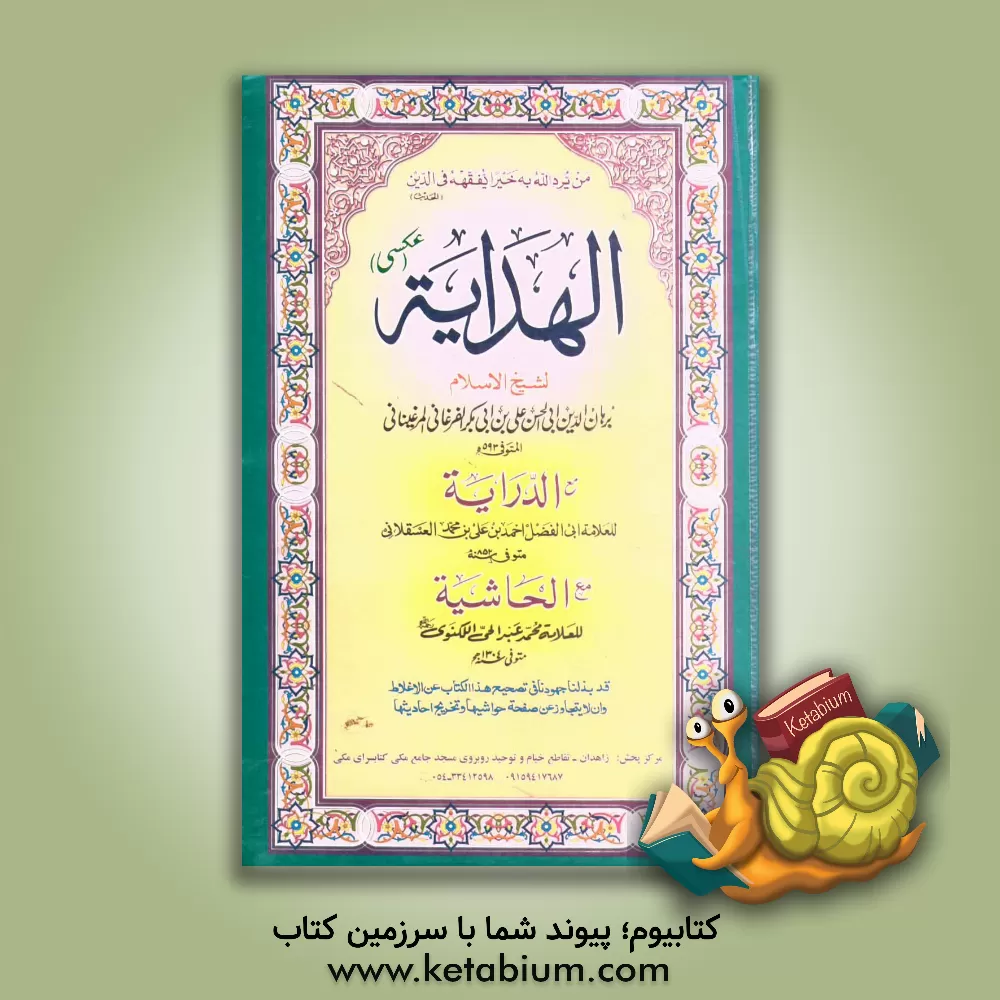 من يُرد الله به خيرا يُفقهه فى الدين
(الحديث)
الهداية (عكسى)
لشيخ الاسلام
برهان الدين ابى الحسن على بن ابى بكر الفرغانى المرغينانى
المتوفى ٥٩٣ه
مع الدِّرَاية
للعلامة ابى الفضل احمد بن على بن محمد العسقلانى
متوفى سنة ٨٥٢
مع الحاشية
للعلامة محمد عبد الحى اللكنوى
متوفى ١٣٠٤ه
قد بذلنا جهودنا فى تصحيح هذا الكتاب عن الاغلاط
وان لا يتجاوز عن صفحة حواشيها وتخريج احاديثها
مرکز پخش: زاهدان ـ تقاطع خیام و توحید روبروی مسجد جامع مکی کتابسرای مکی
۰۵۴-۳۳۴۱۳۵۹۸ ۰۹۱۵۹۴۱۷۶۸۷
Ketabium
کتابیوم؛ پیوند شما با سرزمین کتاب
www.ketabium.com